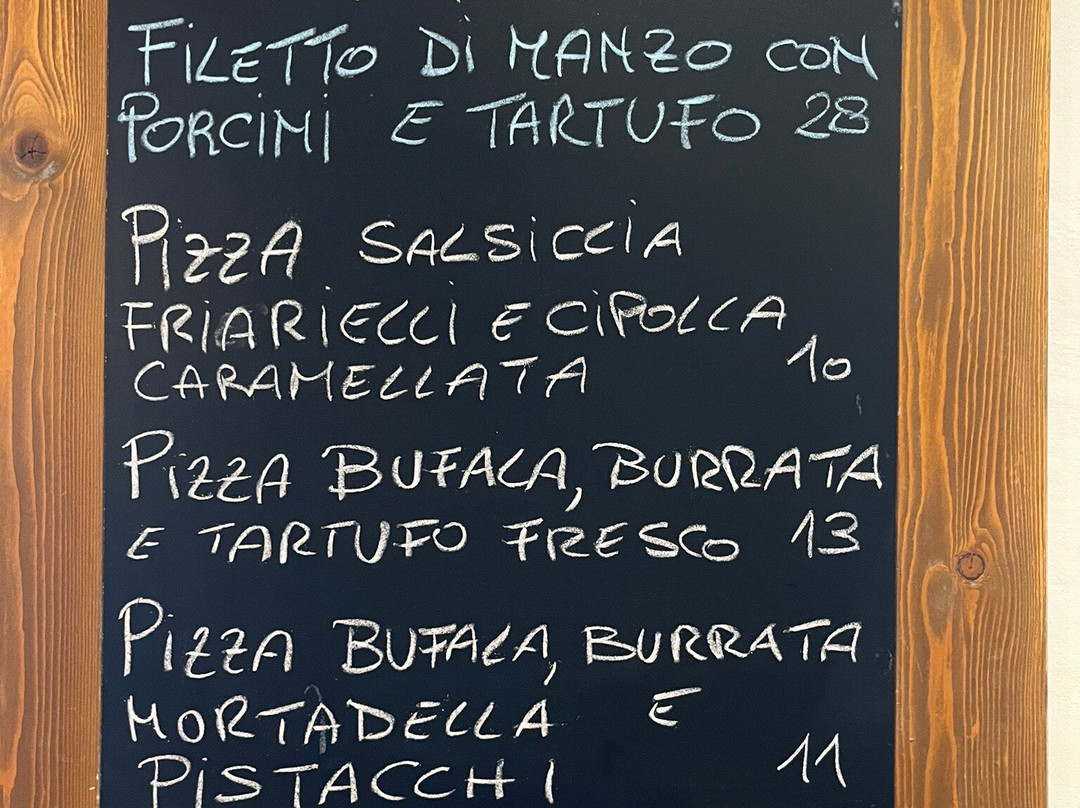 FILETTO DI MANZO CON
PORCINI E TARTUFO 28
PIZZA SALSICCIA
FRIARIELLI E CIPOLLA
CARAMELLATA 10
PIZZA BUFALA, BURRATA
E TARTUFO FRESCO 13
PIZZA BUFALA, BURRATA
MORTADELLA E
PISTACCHI 11